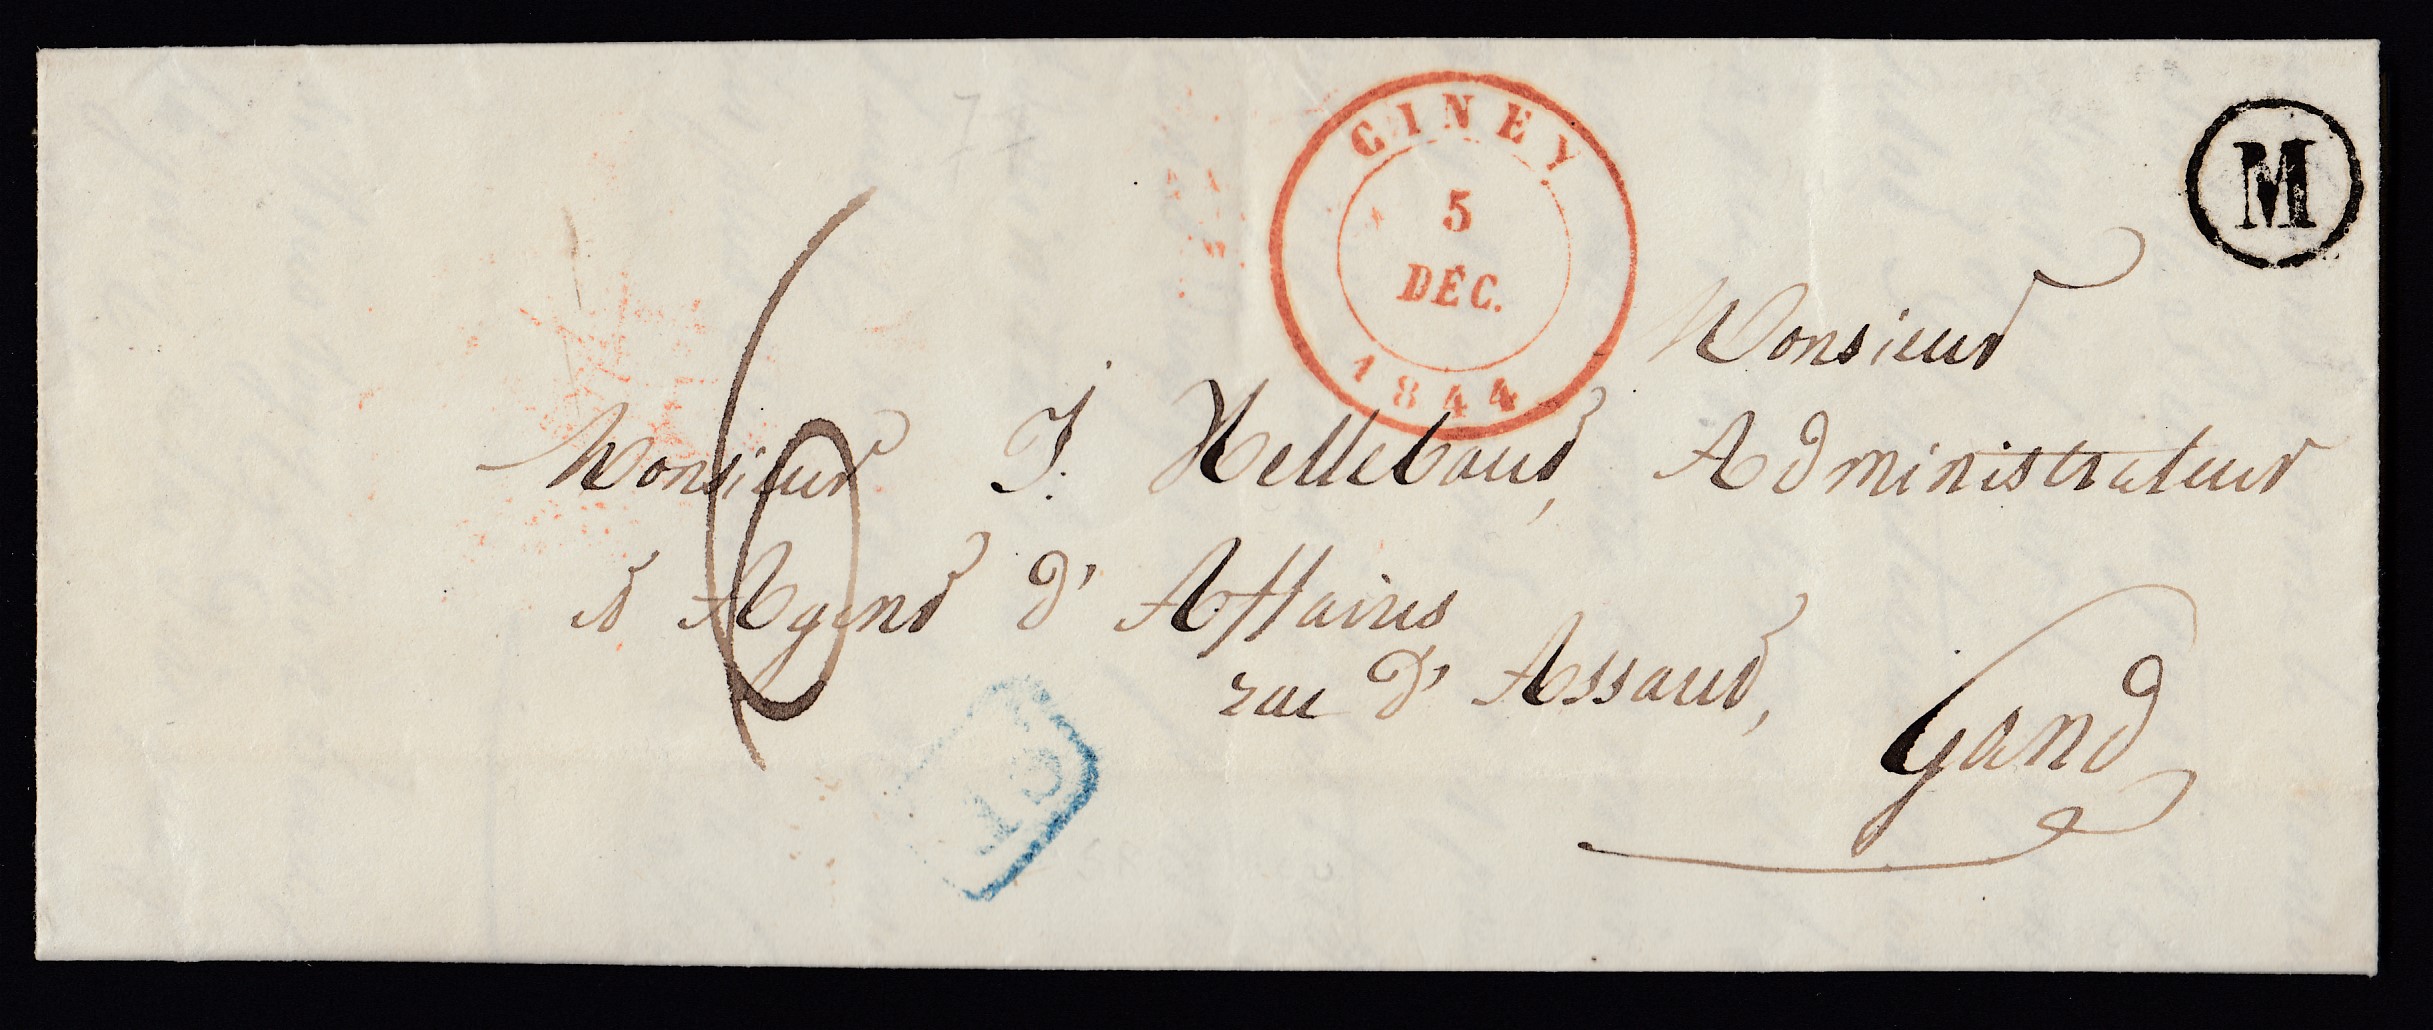 CINEY
5
DÉC.
1844
M
Monsieur
Monsieur J. Hellebaud, Administrateur
et Agent d'Affaires
rue d'Assaud,
Gand
6